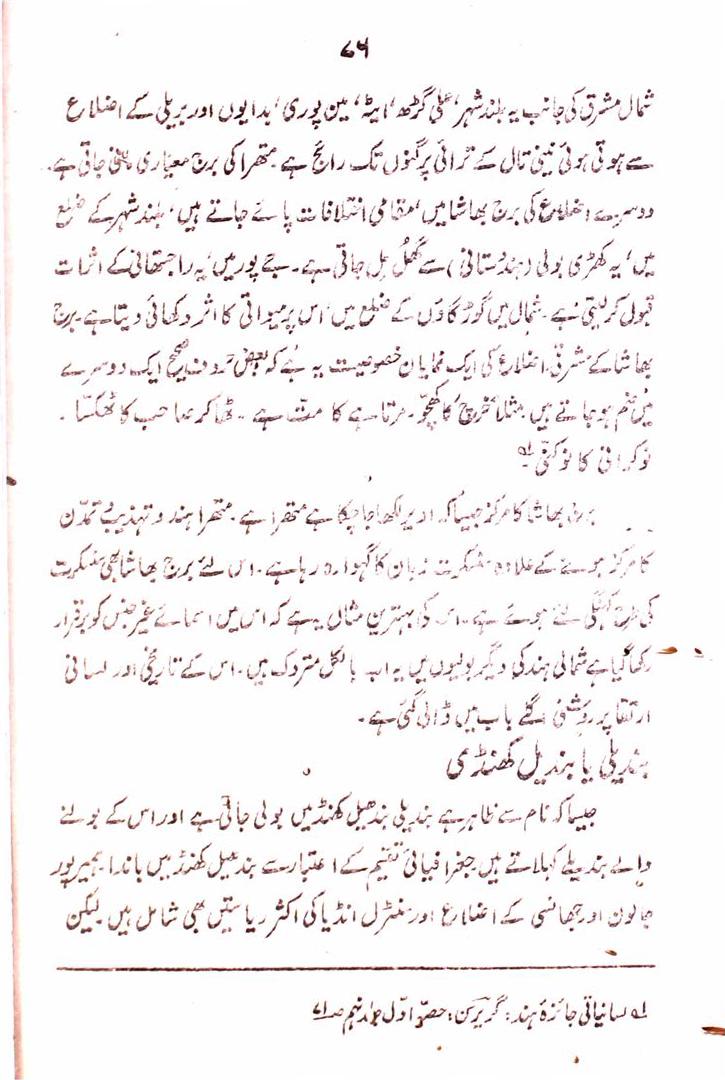 ۷۶
شمال مشرق کی جانب یہ بلند شہر، علی گڑھ، ایٹہ، مین پوری، بدایوں اور بریلی کے اضلاع
سے ہوتی ہوئی نینی تال کے ترائی پرگنوں تک رائج ہے۔ متھرا کی برج معیاری سمجھی جاتی ہے۔
دوسرے اضلاع کی برج بھاشا میں، مقامی اختلافات پائے جاتے ہیں، بلند شہر کے ضلع
میں، یہ کھڑی بولی (ہندوستانی) سے گھُل مِل جاتی ہے۔ جے پور میں، یہ راجستھانی کے اثرات
قبول کر لیتی ہے۔ شمال میں گوڑگاؤں کے ضلع میں، اس پر میواتی کا اثر دکھائی دیتا ہے۔ برج
بھاشا کے مشرقی اضلاع کی ایک نمایاں خصوصیت یہ ہے کہ بعض حروف صحیح ایک دوسرے
میں ضم ہو جاتے ہیں۔ مثلاً خرچ، کا کھچّو۔ مرتا ہے کا متّا ہے۔ ٹھاکر صاحب کا ٹھکسّا۔
نوکرانی کا نوکنّی۔ لہ
برج بھاشا کا مرکز جیسا کہ اوپر لکھا جا چکا ہے متھرا ہے۔ متھرا ہندو تہذیب و تمدّن
کا مرکز ہونے کے علاوہ سنسکرت زبان کا گہوارہ رہا ہے۔ اس لئے برج بھاشا بھی سنسکرت
کی طرح کہنگی لئے ہوئے ہے۔ اس کی بہترین مثال یہ ہے کہ اس میں اسمائے غیر جنس کو برقرار
رکھا گیا ہے شمالی ہند کی دیگر بولیوں میں یہ اب بالکل متروک ہیں۔ اس کے تاریخی اور لسانی
ارتقا پر روشنی اگلے باب میں ڈالی گئی ہے۔
بندیلی یا بندیل کھنڈی
جیسا کہ نام سے ظاہر ہے بندیلی بندھیل کھنڈ میں بولی جاتی ہے اور اس کے بولنے
والے بندیلے کہلاتے ہیں۔ جغرافیائی تقسیم کے اعتبار سے بندھیل کھنڈ میں باندا، ہمیرپور
جالون اور جھانسی کے اضلاع اور سنٹرل انڈیا کی اکثر ریاستیں بھی شامل ہیں لیکن
لہ لسانیاتی جائزۂ ہند: گریرسن: حصّہ اوّل جلد نہم صـ ۷۱